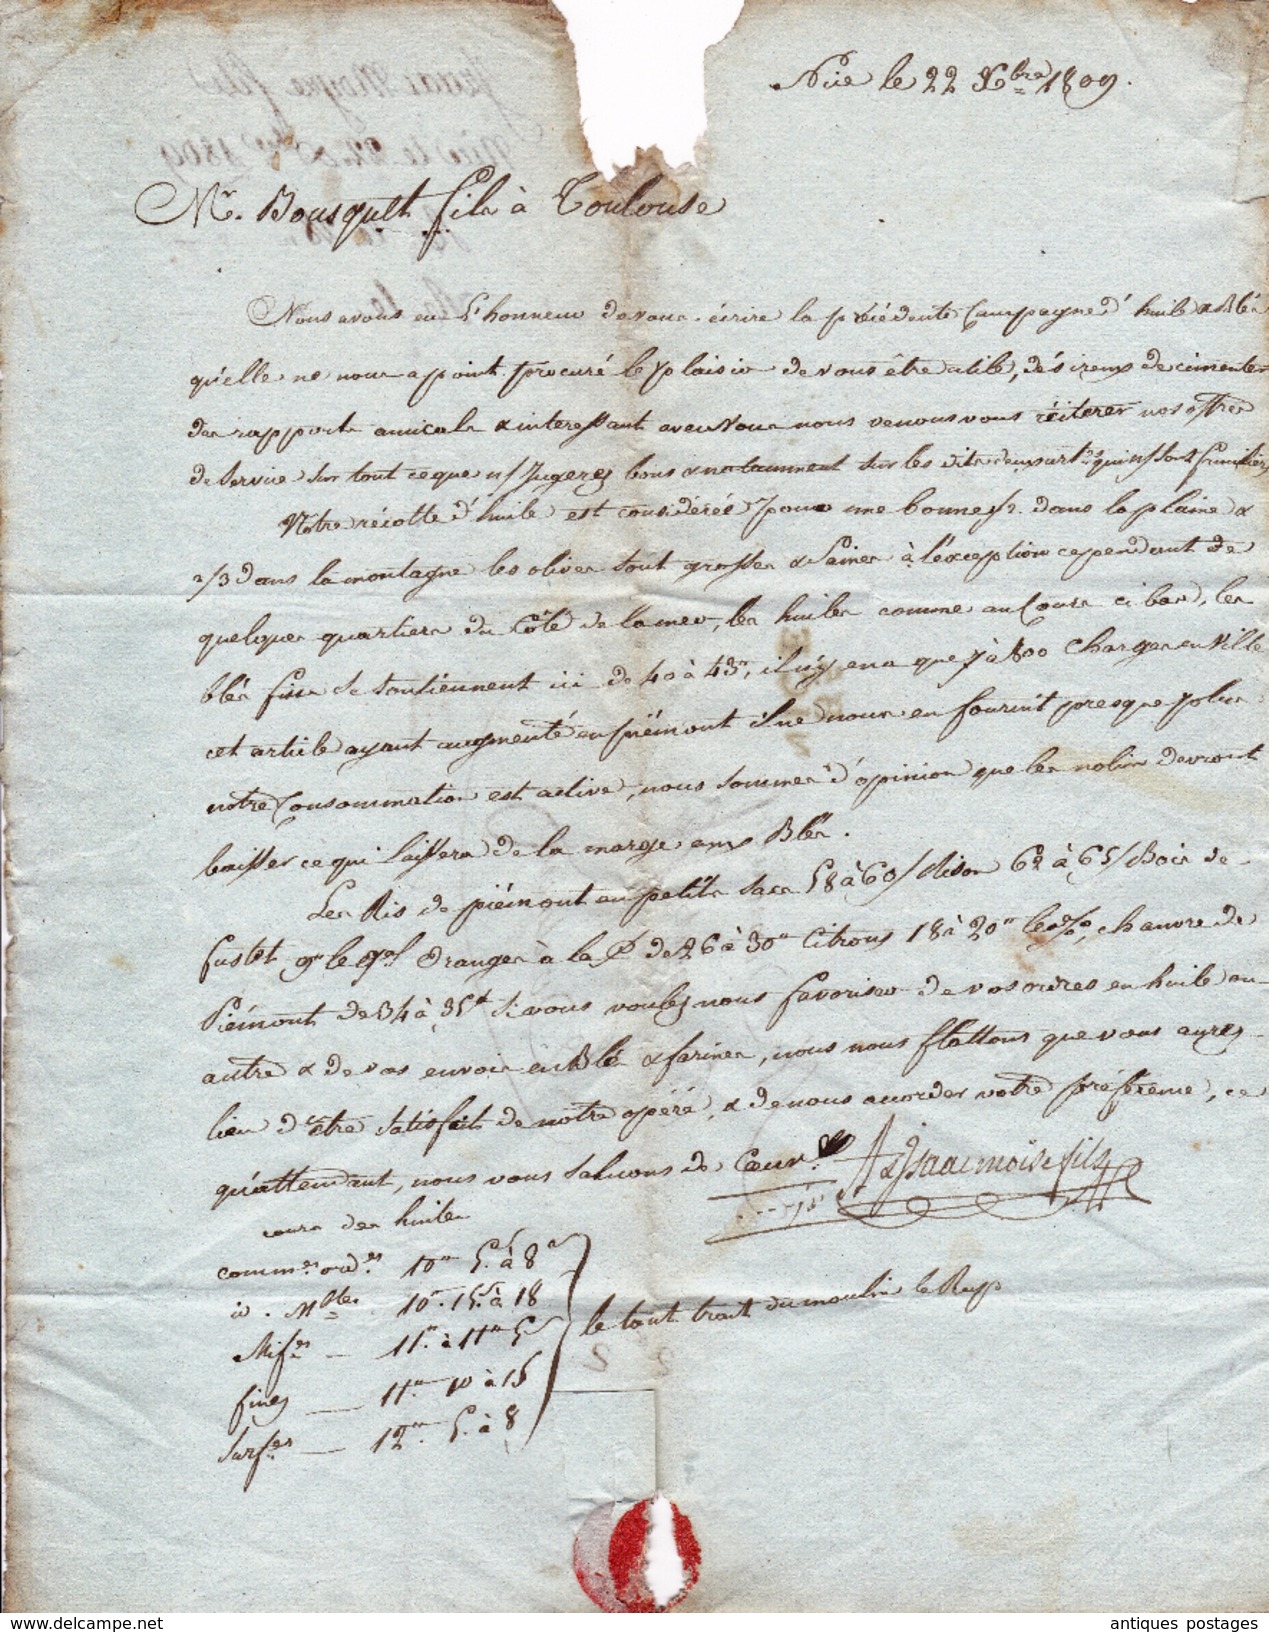 Nice le 22 Xbre 1809.
Mr. Bousquet fils à Toulouse
Nous avons eu l'honneur de vous écrire la précédente Campagne d'huile & Blés
qu'elle ne nous a point procuré le plaisir de vous être utile, désireux de cimenter
des rapports amicals & interessants avec vous nous venons vous réiterer nos offres
de service sur tout ce que jugerez bons & notamment sur les dits deux arts. qui sont familiers
Notre récolte d'huile est considérée pour une bonne dans la plaine &
2/3 dans la montagne les olives sont grosses & saines à l'exception cependant de
quelques quartiers du Côté de la mer, les huiles comme au Cours ci bas, les
blés fins se soutiennent ici de 40 à 43, il n'y en a que 7 à 800 Charges en Ville
cet article ayant augmenté en piémont il ne nous en fournit presque plus
notre Consommation est active, nous sommes d'opinion que les nolis devront
baisser ce qui laissera de la marge aux Blés.
Les Ris de piémont en petits sacs 58 à 60/ Mison 62 à 65/ Bois de
fustet le Oranges à la de 26 à 30 Citrons 18 à 20 le %, chanvre de
Piémont de 34 à 35 si vous voulez nous favoriser de vos ordres en huile ou
autre & de vos envois en Blé & farines, nous nous flattons que vous ayrez
lieu d'être satisfait de notre opéré, & de nous accorder votre préférence, ce
qu'attendant, nous vous saluons de Cœur.
Isaac moïse fils
cours des huiles
comm.es ord.es 10 5 à 8
id. Mbles 10. 15 à 18
Mifes — 11. à 11 5
fines — 11. 10 à 15
Surfes — 12. 5. à 8
le tout trait du moulin le Rup
antiques postages
delcampe.net